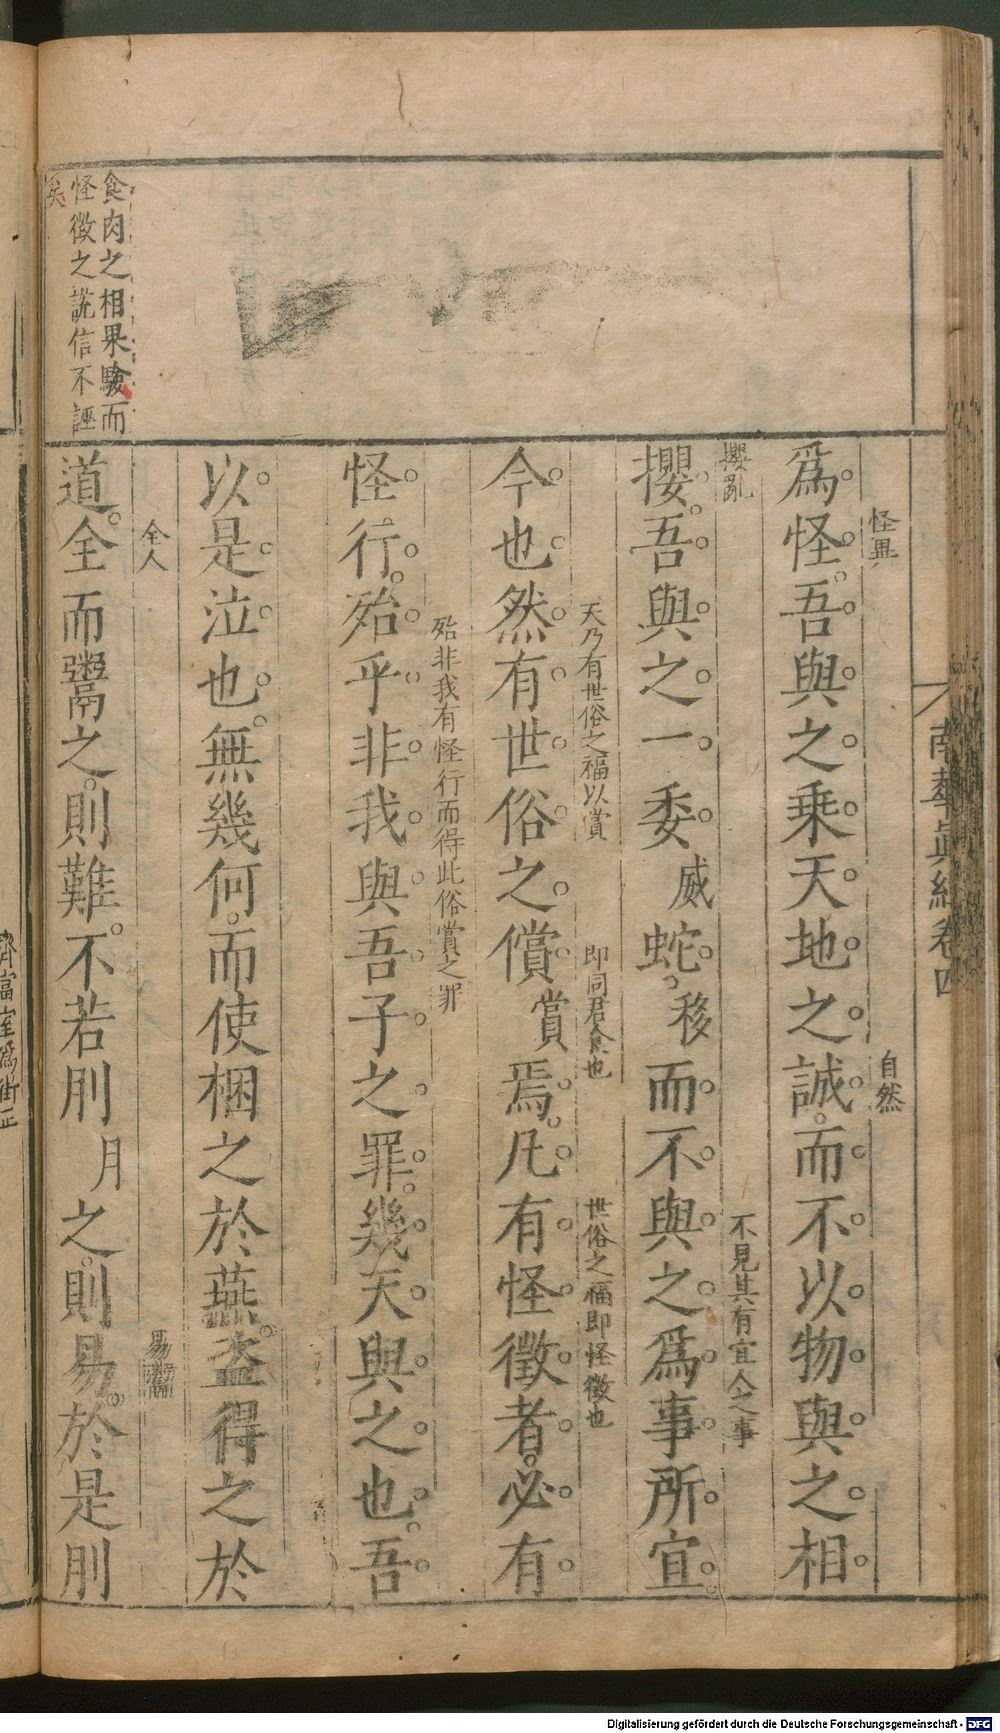 南華眞經卷四
怪異
自然
爲怪吾與之乗天地之誠而不以物與之相
攖亂
不見其有宜人之事
攖吾與之一委威蛇移而不與之爲事所宜
天乃有世俗之福以賞
即同君食也
世俗之福即怪徵也
今也然有世俗之償賞焉凡有怪徵者必有
殆非我有怪行而得此俗賞之罪
怪行殆乎非我與吾子之罪幾天與之也吾
以是泣也無幾何而使梱之於燕盗得之於
全人
易鬻
道全而鬻之則難不若刖月之則易於是刖
食肉之相果驗而
怪徵之說信不誣
矣
齊富室爲街正
Digitalisierung gefördert durch die Deutsche Forschungsgemeinschaft - DFG